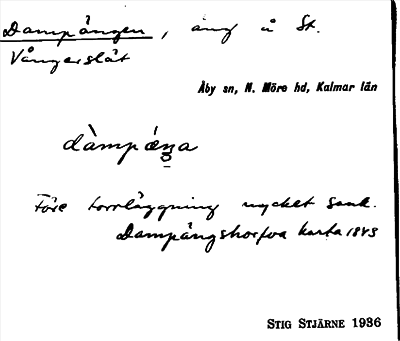 Dampängen, äng å St.
Vångerslät
Åby sn, N. Möre hd, Kalmar län
dàmpǽŋa
Före torrläggning mycket sank.
Dampängshorfva karta 1843
STIG STJÄRNE 1936